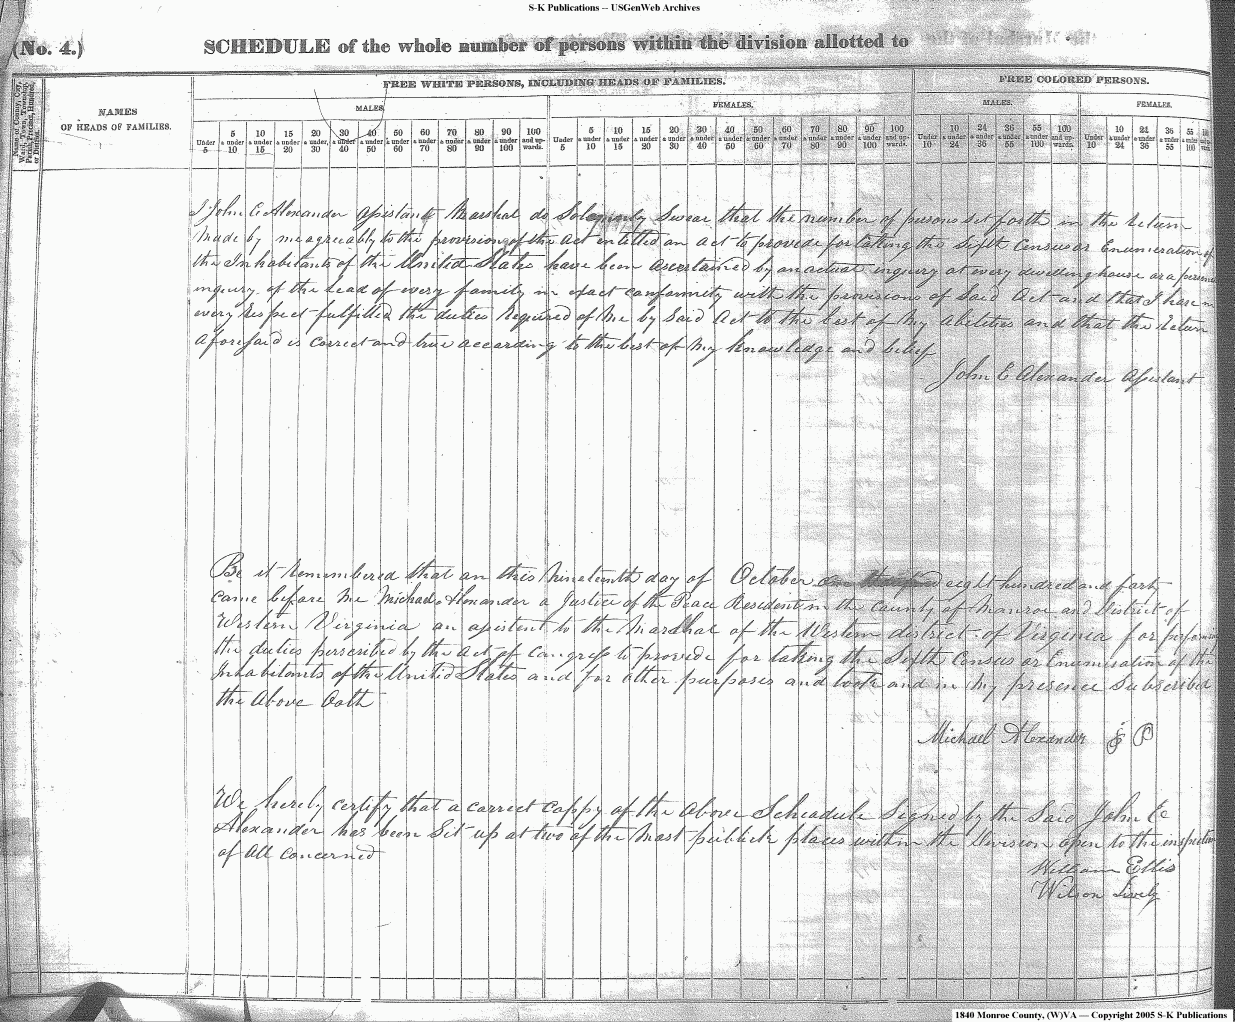 S-K Publications -- USGenWeb Archives
(No. 4.)
SCHEDULE of the whole number of persons within the division allotted to
Name of County, City, Ward, Town, Township, Parish, Precinct, Hundred, or District.
NAMES
OF HEADS OF FAMILIES.
FREE WHITE PERSONS, INCLUDING HEADS OF FAMILIES.
FREE COLORED PERSONS.
MALES.
FEMALES.
MALES.
FEMALES.
Under 5
5 & under 10
10 & under 15
15 & under 20
20 & under 30
30 & under 40
40 & under 50
50 & under 60
60 & under 70
70 & under 80
80 & under 90
90 & under 100
100 and upwards.
Under 5
5 & under 10
10 & under 15
15 & under 20
20 & under 30
30 & under 40
40 & under 50
50 & under 60
60 & under 70
70 & under 80
80 & under 90
90 & under 100
100 and upwards.
Under 10
10 & under 24
24 & under 36
36 & under 55
55 & under 100
100 and upwards.
Under 10
10 & under 24
24 & under 36
36 & under 55
55 & under 100
I John E Alexander Assistant Marshal do Solemnly Swear that the number of persons set forth in the return
Made by me agreeably to the provisions of the Act entitled an act to provide for taking the Sixth Census or Enumeration of
the Inhabitants of the United States have been ascertained by an actual inquiry at every dwelling house or a personal
inquiry of the head of every family in exact conformity with the provisions of Said Act and that I have in
every respect fulfilled the duties required of Me by Said Act to the best of My abilities and that the return
aforesaid is correct and true according to the best of My Knowledge and belief
John E Alexander Assistant
Be it Remembered that on this Nineteenth day of October one thousand eight hundred and forty
came before Me Michael Alexander a Justice of the Peace Resident in the County of Monroe and District of
Western Virginia an assistent to the Marshal of the Western district of Virginia for performing
the duties perscribed by the Act of Congress to provide for taking the Sixth Census or Enumeration of the
Inhabitants of the United States and for other purposes and took and in My presence Subscribed
the Above Oath
Michael Alexander J P
We hereby certify that a correct coppy of the above Scheadule Signed by the Said John E
Alexander has been Set up at two of the most publick places within the Division open to the inspection
of All concerned
William Ellis
Wilson Lively
1840 Monroe County, (W)VA — Copyright 2005 S-K Publications